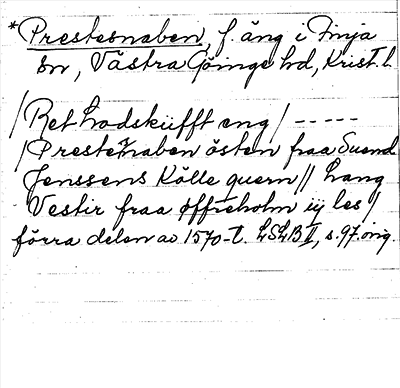 *Prestesnaben, f. äng i Finja
sn, Västra Göinge hd, Krist. l.
/Ret Lodskiifft eng/ -----
/Prestesnaben östen fraa Suend
Jenssens Kölle quern// Lang
Vestir fraa øffreholm iij les/
förra delen av 1570-t. LSLB II, s. 97. orig.